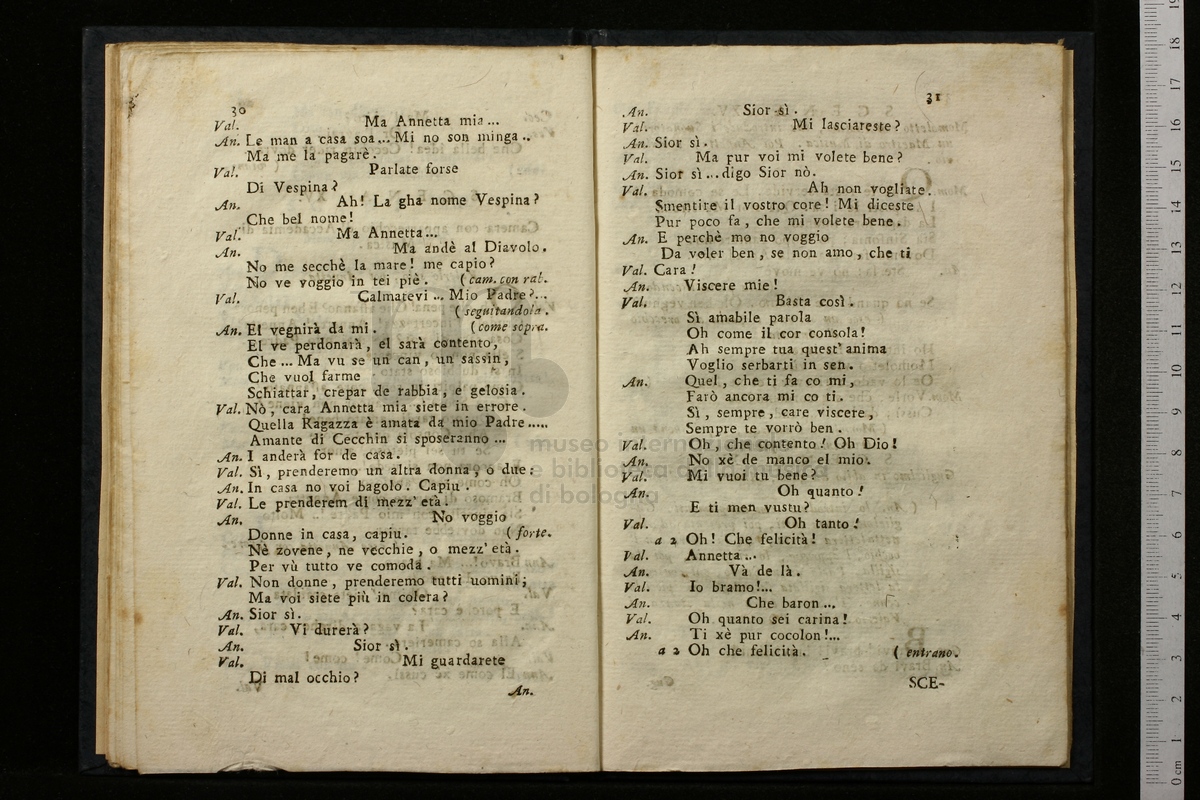 30
Val. Ma Annetta mia ...
An. Le man a casa soa... Mi no son minga ..
Ma me la pagarè.
Val. Parlate forse
Di Vespina?
An. Ah! La gha nome Vespina?
Che bel nome!
Val. Ma Annetta...
An. Ma andè al Diavolo.
No me secchè la mare! me capio?
No ve voggio in tei piè. (cam. con rab.
Val. Calmatevi ... Mio Padre?...
(seguitandola.
An. El vegnirà da mi. (come sopra.
El ve perdonarà, el sarà contento,
Che ... Ma vu se un can, un sassin,
Che vuol farme
Schiattar, crepar de rabbia, e gelosia.
Val. Nò, cara Annetta mia siete in errore.
Quella Ragazza è amata da mio Padre.....
Amante di Cecchin si sposeranno ...
An. I anderà for de casa.
Val. Sì, prenderemo un altra donna, o due:
An. In casa no voi bagolo. Capiu.
Val. Le prenderem di mezz' età.
An. No voggio
Donne in casa, capiu. (forte.
Nè zovene, ne vecchie, o mezz' età.
Per vù tutto ve comoda.
Val. Non donne, prenderemo tutti uomini;
Ma voi siete più in colera?
An. Sior sì.
Val. Vi durerà?
An. Sior sì.
Val. Mi guardarete
Di mal occhio?
An.
31
An. Sior sì.
Val. Mi lasciareste?
An. Sior sì.
Val. Ma pur voi mi volete bene?
An. Sior sì... digo Sior nò.
Val. Ah non vogliate.
Smentire il vostro core! Mi diceste
Pur poco fa, che mi volete bene.
An. E perchè mo no voggio
Da voler ben, se non amo, che ti
Val. Cara!
An. Viscere mie!
Val. Basta così.
Sì amabile parola
Oh come il cor consola!
Ah sempre tua quest' anima
Voglio serbarti in sen.
An. Quel, che ti fa co mi,
Farò ancora mi co ti.
Sì, sempre, care viscere,
Sempre te vorrò ben.
Val. Oh, che contento! Oh Dio!
An. No xè de manco el mio.
Val. Mi vuoi tu bene?
An. Oh quanto!
E ti men vustu?
Val. Oh tanto!
a 2 Oh! Che felicità!
Val. Annetta...
An. Và de là.
Val. Io bramo!...
An. Che baron ...
Val. Oh quanto sei carina!
An. Ti xè pur cocolon!...
a 2 Oh che felicità. (entrano.
SCE-